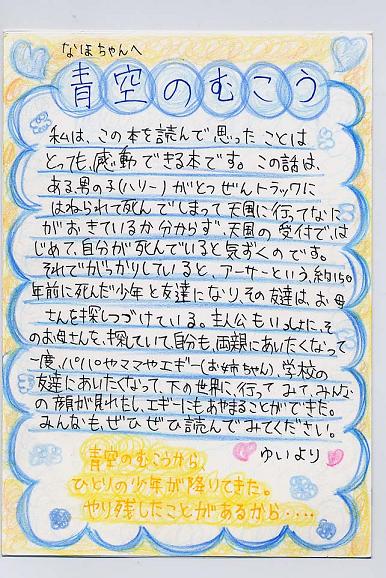 なほちゃんへ
青空のむこう
私は、この本を読んで思ったことは
とっても、感動できる本です。この話は、
ある男の子(ハリー)がとつぜんトラックに
はねられて死んでしまって天国に行ってなに
がおきているか分からず、天国の受付では、
じめて、自分が死んでいると気ずくのです。
それでがっかりしていると、アーサーという、約150
年前に死んだ少年と友達になり、その友達は、お母
さんを探しつづけている。主人公もいっしょに、そ
のお母さんを、探していて、自分も、両親にあいたくなって
一度、パパやママやエギー(お姉ちゃん)、学校の
友達にあいたくなって、下の世界に、行ってみて、みんな
の顔が見れたし、エギーにもあやまることができた。
みんなも、ぜひぜひ読んでみてください。
ゆいより
青空のむこうから、
ひとりの少年が降りてきた。
やり残したことがあるから・・・・